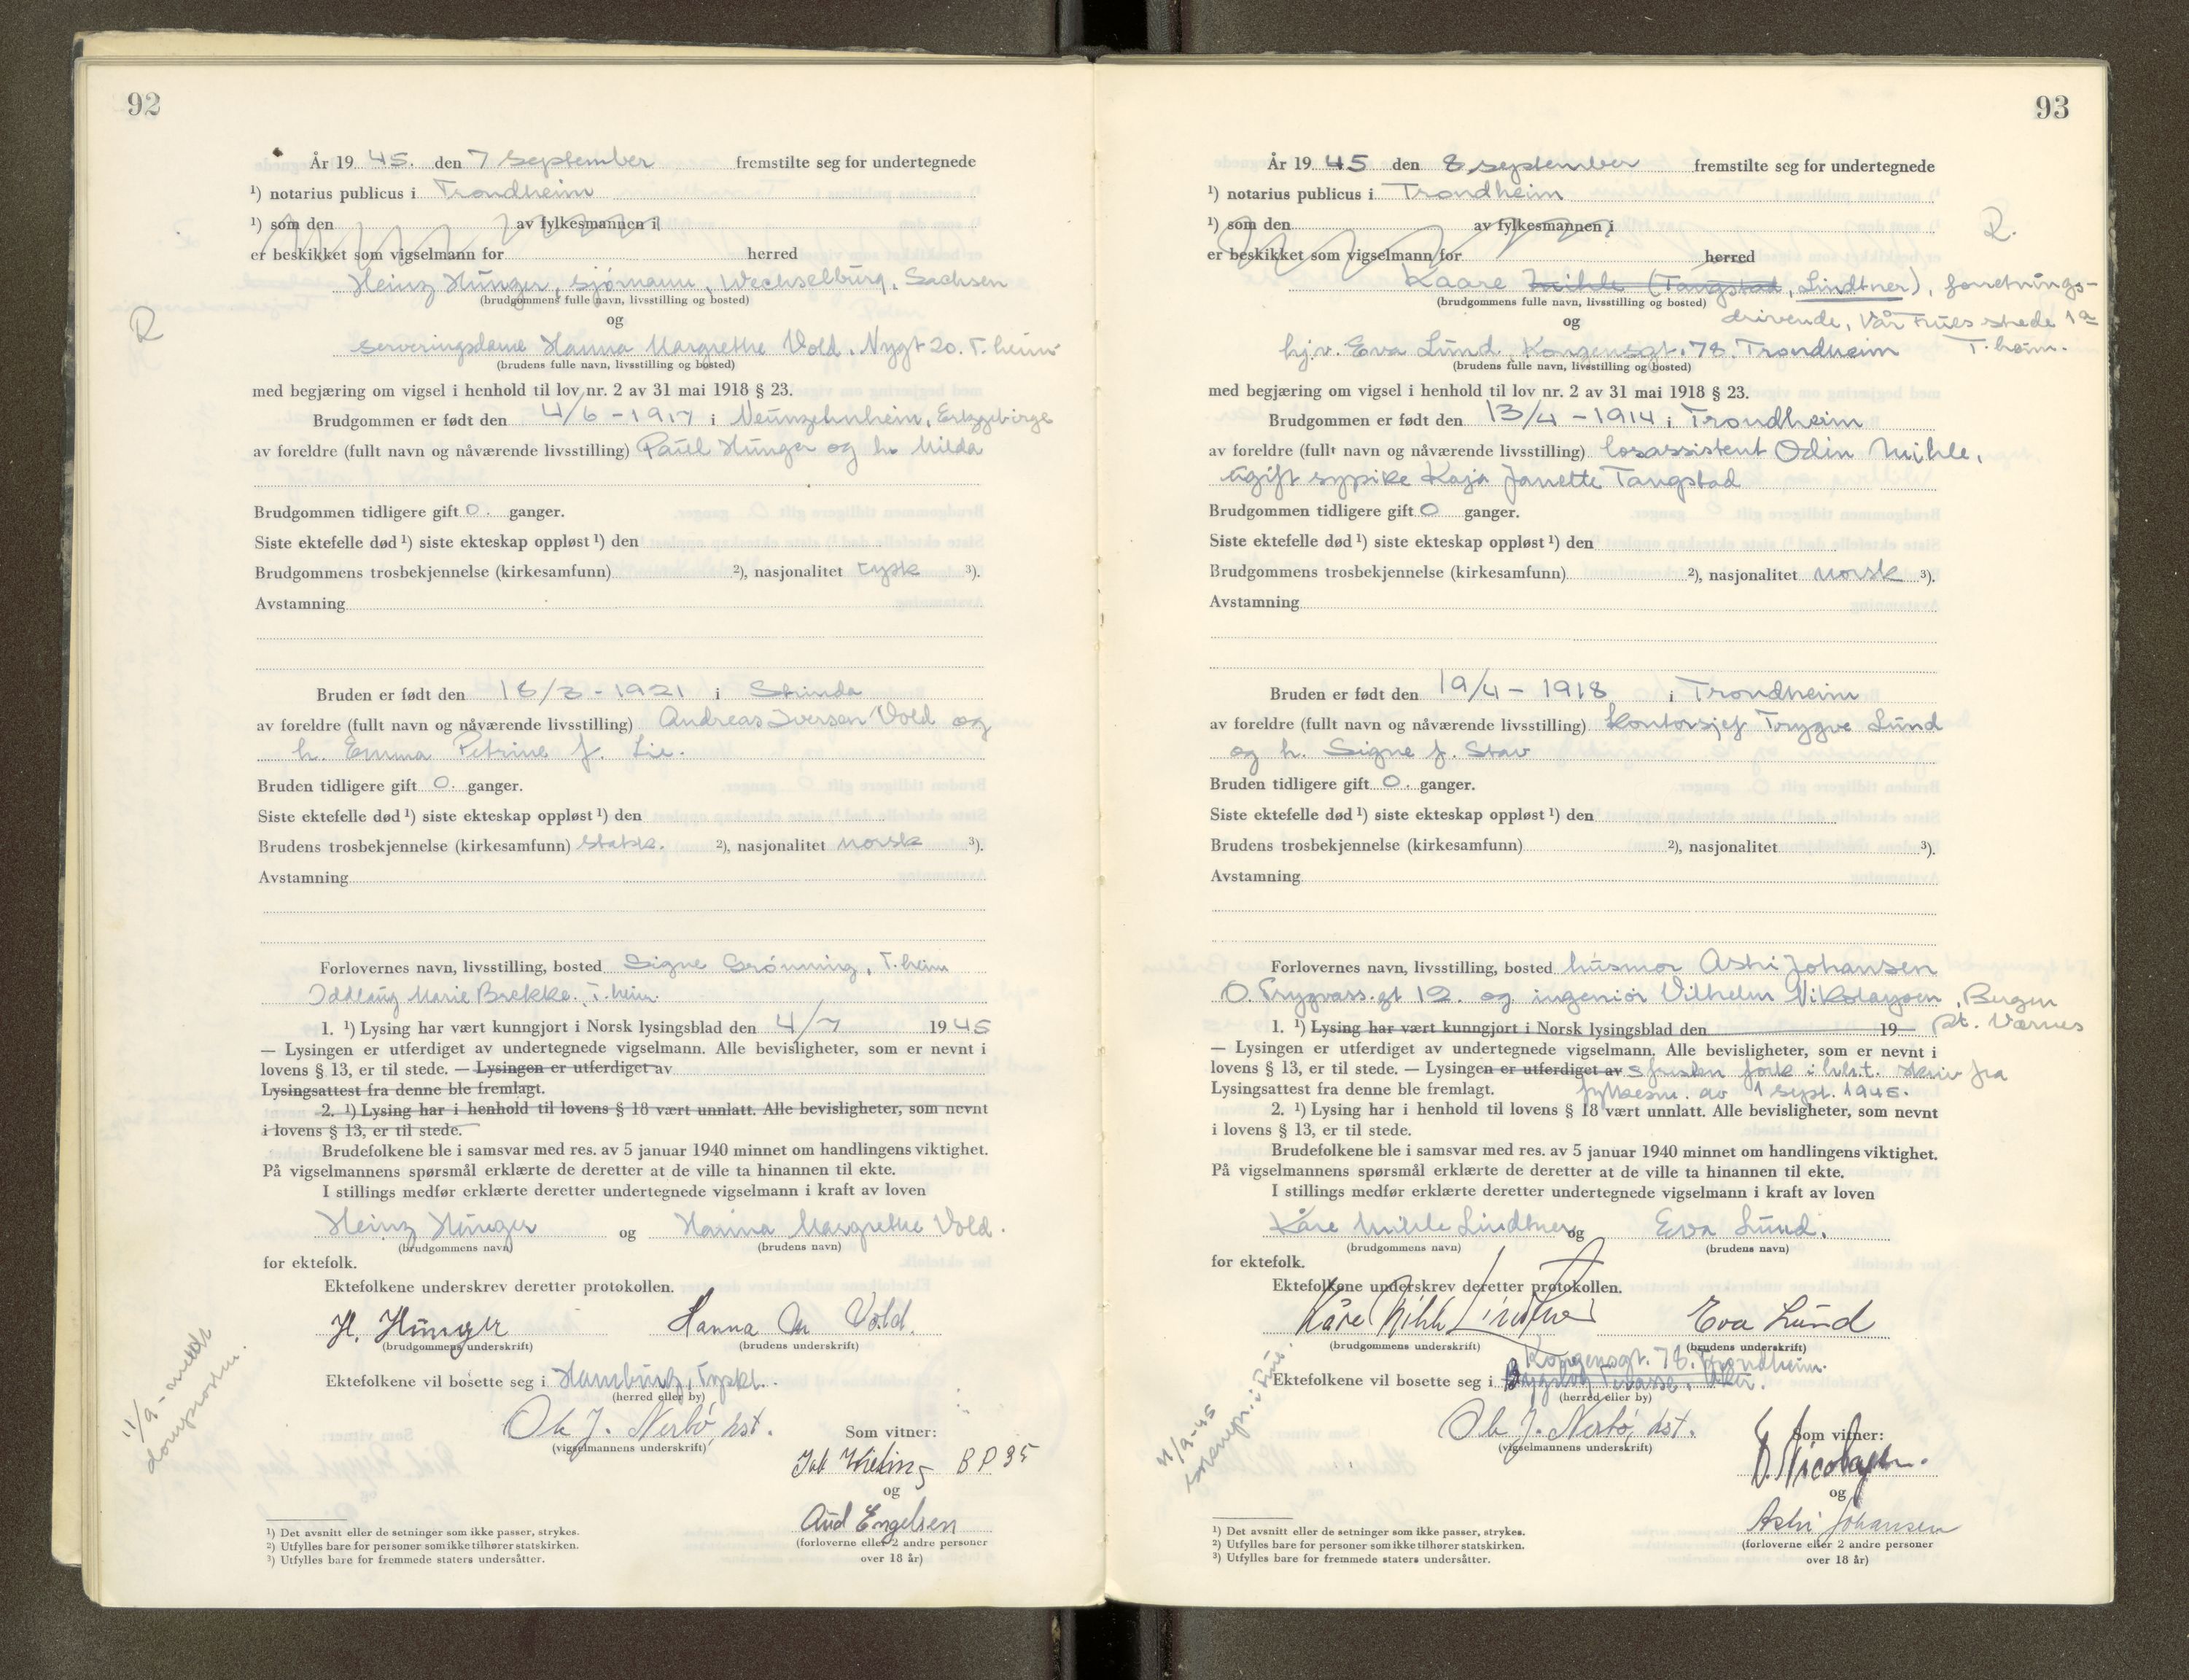 92
År 19 45. den 7 september fremstilte seg for undertegnede
¹) notarius publicus i Trondheim
¹) som den av fylkesmannen i
er beskikket som vigselmann for herred
Heinz Hunger, sjømann, Wechselburg, Sachsen
(brudgommens fulle navn, livsstilling og bosted)
og
R
serveringsdame Hanna Margrethe Vold, Nygt 20. T.heim
(brudens fulle navn, livsstilling og bosted)
med begjæring om vigsel i henhold til lov nr. 2 av 31 mai 1918 § 23.
Brudgommen er født den 4/6 - 1917 i Neunzehnhein, Erzgebirge
av foreldre (fullt navn og nåværende livsstilling) Paul Hunger og h. Milda
Brudgommen tidligere gift 0. ganger.
Siste ektefelle død ¹) siste ekteskap oppløst ¹) den
Brudgommens trosbekjennelse (kirkesamfunn) ²), nasjonalitet tysk ³).
Avstamning
Bruden er født den 18/3 - 1921 i Strinda
av foreldre (fullt navn og nåværende livsstilling) Andreas Iversen Vold og
h. Emma Petrine f. Lie.
Bruden tidligere gift 0. ganger.
Siste ektefelle død ¹) siste ekteskap oppløst ¹) den
Brudens trosbekjennelse (kirkesamfunn) statsk. ²), nasjonalitet norsk ³).
Avstamning
Forlovernes navn, livsstilling, bosted Signe Grønning, T.heim
Oddlaug Marie Brekke, T.heim.
1. ¹) Lysing har vært kunngjort i Norsk lysingsblad den 4/7 19 45
— Lysingen er utferdiget av undertegnede vigselmann. Alle bevisligheter, som er nevnt i
lovens § 13, er til stede. — Lysingen er utferdiget av
Lysingsattest fra denne ble fremlagt.
2. ¹) Lysing har i henhold til lovens § 18 vært unnlatt. Alle bevisligheter, som nevnt
i lovens § 13, er til stede.
Brudefolkene ble i samsvar med res. av 5 januar 1940 minnet om handlingens viktighet.
På vigselmannens spørsmål erklærte de deretter at de ville ta hinannen til ekte.
I stillings medfør erklærte deretter undertegnede vigselmann i kraft av loven
Heinz Hunger og Hanna Margrethe Vold.
(brudgommens navn) (brudens navn)
for ektefolk.
Ektefolkene underskrev deretter protokollen.
H. Hunger Hanna M Vold.
(brudgommens underskrift) (brudens underskrift)
Ektefolkene vil bosette seg i Hamburg, Tyskl.
(herred eller by)
11/9 - meldt
domprosten.
Ole J. Nerbö, hst.
(vigselmannens underskrift)
Som vitner:
BP 35
og
Aud Engelsen
(forloverne eller 2 andre personer
over 18 år)
¹) Det avsnitt eller de setninger som ikke passer, strykes.
²) Utfylles bare for personer som ikke tilhører statskirken.
³) Utfylles bare for fremmede staters undersåtter.
93
År 19 45 den 8 september fremstilte seg for undertegnede
¹) notarius publicus i Trondheim
¹) som den av fylkesmannen i
R.
er beskikket som vigselmann for herred
Kaare Mihle (Tangstad, Lindtner), forretnings-
(brudgommens fulle navn, livsstilling og bosted)
drivende, Vår Frues strede 1a
og
T.heim.
hj.v. Eva Lund, Kongensgt. 78. Trondheim
(brudens fulle navn, livsstilling og bosted)
med begjæring om vigsel i henhold til lov nr. 2 av 31 mai 1918 § 23.
Brudgommen er født den 13/4 - 1914 i Trondheim
av foreldre (fullt navn og nåværende livsstilling) losassistent Odin Mihle,
ugift sypike Kaja Janette Tangstad
Brudgommen tidligere gift 0 ganger.
Siste ektefelle død ¹) siste ekteskap oppløst ¹) den
Brudgommens trosbekjennelse (kirkesamfunn) ²), nasjonalitet norsk ³).
Avstamning
Bruden er født den 19/4 - 1918 i Trondheim
av foreldre (fullt navn og nåværende livsstilling) Kontorsjef Trygve Lund
og h. Signe f. Stav
Bruden tidligere gift 0. ganger.
Siste ektefelle død ¹) siste ekteskap oppløst ¹) den
Brudens trosbekjennelse (kirkesamfunn) ²), nasjonalitet ³).
Avstamning
Forlovernes navn, livsstilling, bosted husmor Astri Johansen
O. Trygvass. gt 12. og ingeniør Vilhelm Nikolaysen, Bergen
pt. Værnes
1. ¹) Lysing har vært kunngjort i Norsk lysingsblad den 19
— Lysingen er utferdiget av undertegnede vigselmann. Alle bevisligheter, som er nevnt i
lovens § 13, er til stede. — Lysingen er utferdiget av fristen fork. i h.h.t. skriv fra
Lysingsattest fra denne ble fremlagt. fylkesm. av 1 sept. 1945.
2. ¹) Lysing har i henhold til lovens § 18 vært unnlatt. Alle bevisligheter, som nevnt
i lovens § 13, er til stede.
Brudefolkene ble i samsvar med res. av 5 januar 1940 minnet om handlingens viktighet.
På vigselmannens spørsmål erklærte de deretter at de ville ta hinannen til ekte.
I stillings medfør erklærte deretter undertegnede vigselmann i kraft av loven
Kåre Mihle Lindtner og Eva Lund.
(brudgommens navn) (brudens navn)
for ektefolk.
Ektefolkene underskrev deretter protokollen.
Kåre Mihle Lindtner Eva Lund
(brudgommens underskrift) (brudens underskrift)
Kongensgt. 78. Trondheim.
Ektefolkene vil bosette seg i Terasse, Aker.
(herred eller by)
11/9-45
Ole J. Nerbö, hst.
(vigselmannens underskrift)
Som vitner:
V. Nicolaysen.
og
Astri Johansen
(forloverne eller 2 andre personer
over 18 år)
¹) Det avsnitt eller de setninger som ikke passer, strykes.
²) Utfylles bare for personer som ikke tilhører statskirken.
³) Utfylles bare for fremmede staters undersåtter.